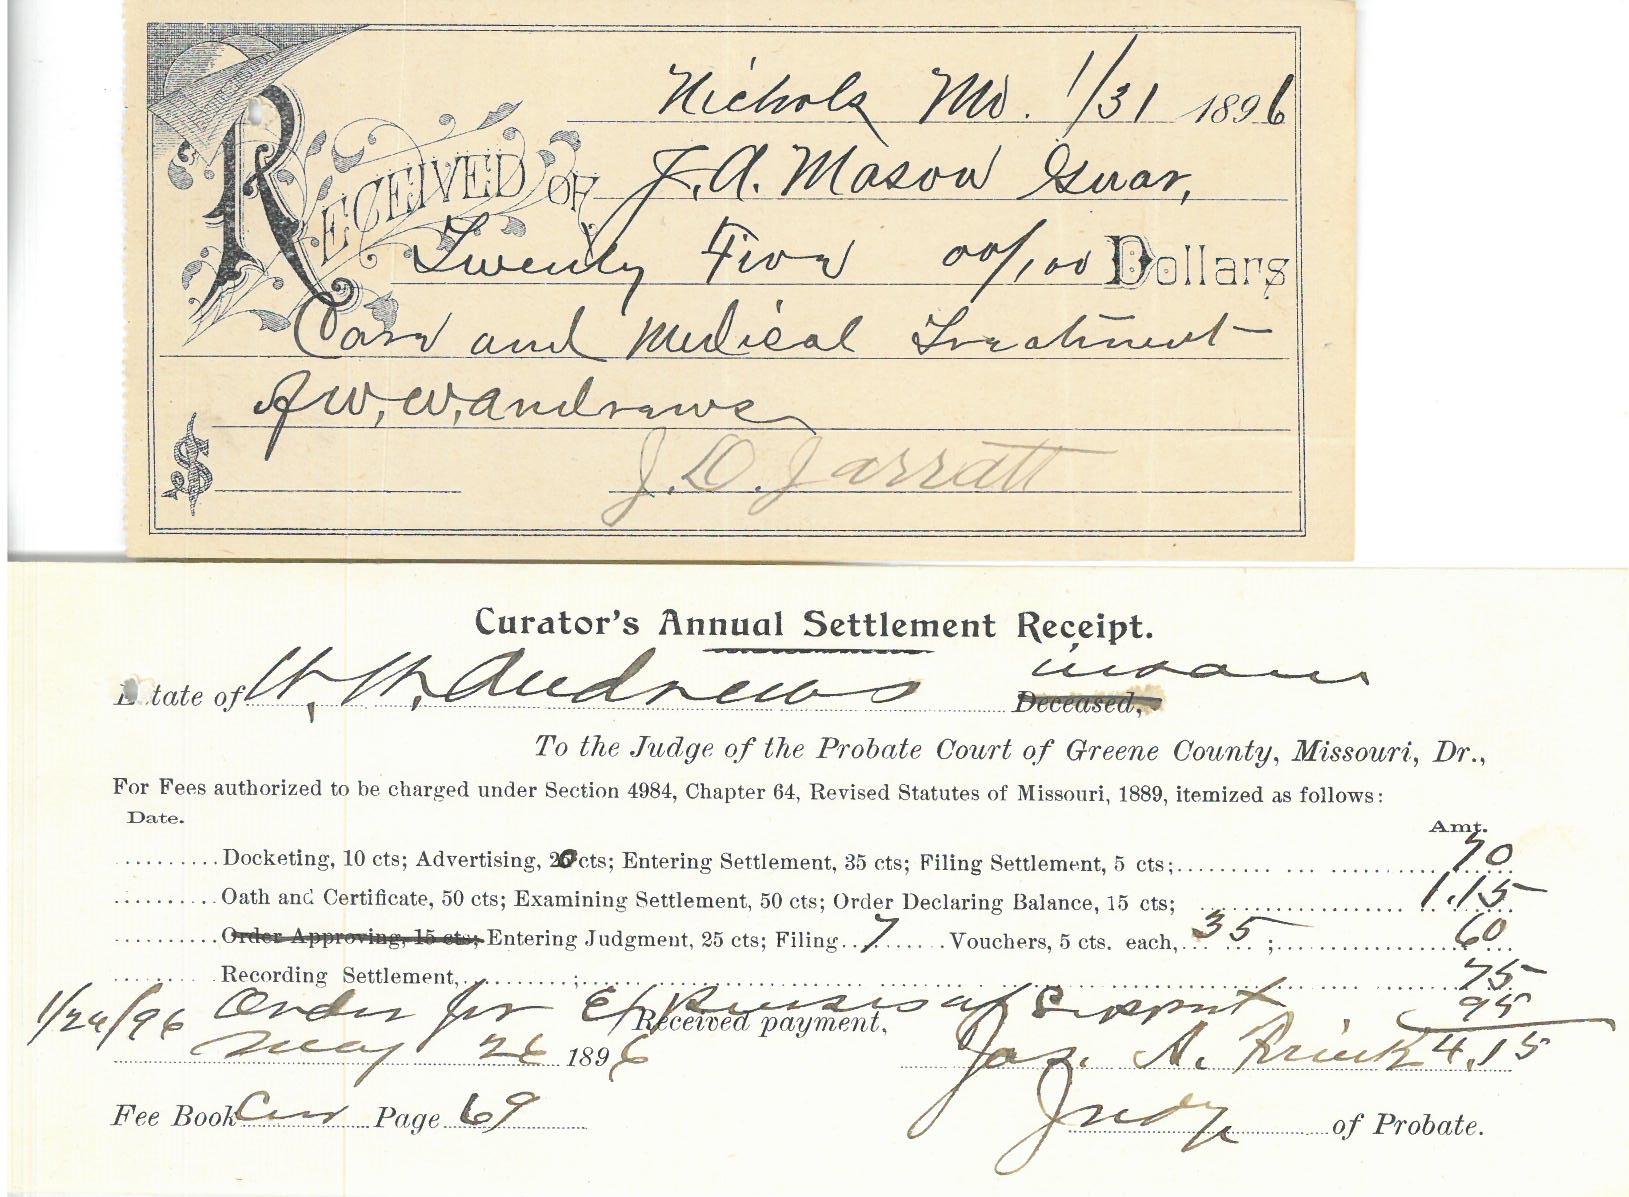 Nichols Mo. 1/31 1896
RECEIVED OF J. A. Mason Guar,
Twenty Five 00/100 Dollars
Care and Medical Treatment
of W. W. Andrews
$ J. D. Jarratt
Curator's Annual Settlement Receipt.
Estate of W. W. Andrews Deceased, insane
To the Judge of the Probate Court of Greene County, Missouri, Dr.,
For Fees authorized to be charged under Section 4984, Chapter 64, Revised Statutes of Missouri, 1889, itemized as follows:
Date. Amt.
Docketing, 10 cts; Advertising, 20 cts; Entering Settlement, 35 cts; Filing Settlement, 5 cts; 70
Oath and Certificate, 50 cts; Examining Settlement, 50 cts; Order Declaring Balance, 15 cts; 1.15
Order Approving, 15 cts; Entering Judgment, 25 cts; Filing 7 Vouchers, 5 cts. each, 35; 60
Recording Settlement, ; 75
1/24/96 Order for Expenses of Support 95
Received payment,
May 26 1896 Jas. A. 4.15
Judge of Probate.
Fee Book Cur Page 69